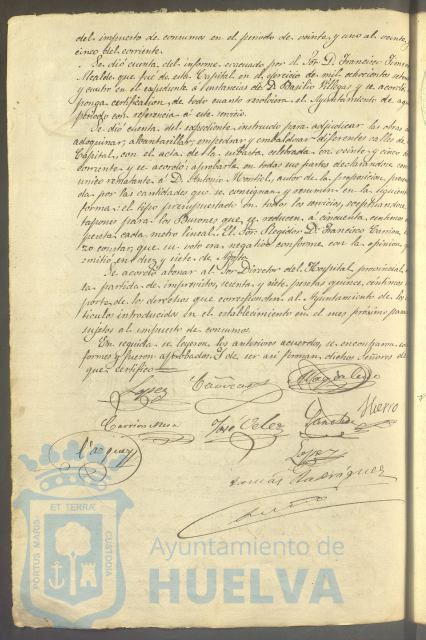 del impuesto de consumos en el periodo de veinte y uno al veinte
cinco del corriente.
Se dió cuenta del informe evacuado por el Sor D. Francisco
Alcalde que fué de esta Capital en el ejercicio de mil ochocientos
y cuatro en el espediente a instancias de D. Basilio Villegas y se acordó
ponga certificacion de todo cuanto resolviera el Ayuntamiento de
periodo con referencia á este servicio.
Se dió cuenta del espediente instruido para adjudicar las obras
adoquinar, alcantarillar, empedrar y embaldosar diferentes calles de
Capital, con el acta de la subasta celebrada en veinte y cinco
corriente y se acordó: aprobarla en todas sus partes declarándose
único rematante á D. Antonio Montiel, autor de la proposicion,
da por las cantidades que se consignan y resumen en la siguiente
forma: el tipo presupuestado en todos los servicios, esceptuando
tapones para los Buzones que se reducen á cincuenta centimos
peseta cada metro lineal. El Sor Regidor D. Francisco Carrion,
zo constar que su voto era negativo conforme con la opinion
emitió en diez y siete de Agosto.
Se acordó abonar al Sor Director del Hospital provincial
la partida de imprevistos, cuenta y siete pesetas quince centimos
porte de los derechos que correspondian al Ayuntamiento de los
ticulos introducidos en el establecimiento en el mes próximo
sujetos al impuesto de consumos.
En seguida se leyeron los anteriores acuerdos, se encontraron
formes y fueron aprobados. Y de ser asi firman dichos Señores de
que certifico
Lopez
Carrion Mesa
José Velez
Sanchez
Hierro
Vazquez
Lopez
Tomás Rodriguez
PORTUS MARIS
ET TERRÆ
CUSTODIA
Ayuntamiento de
HUELVA